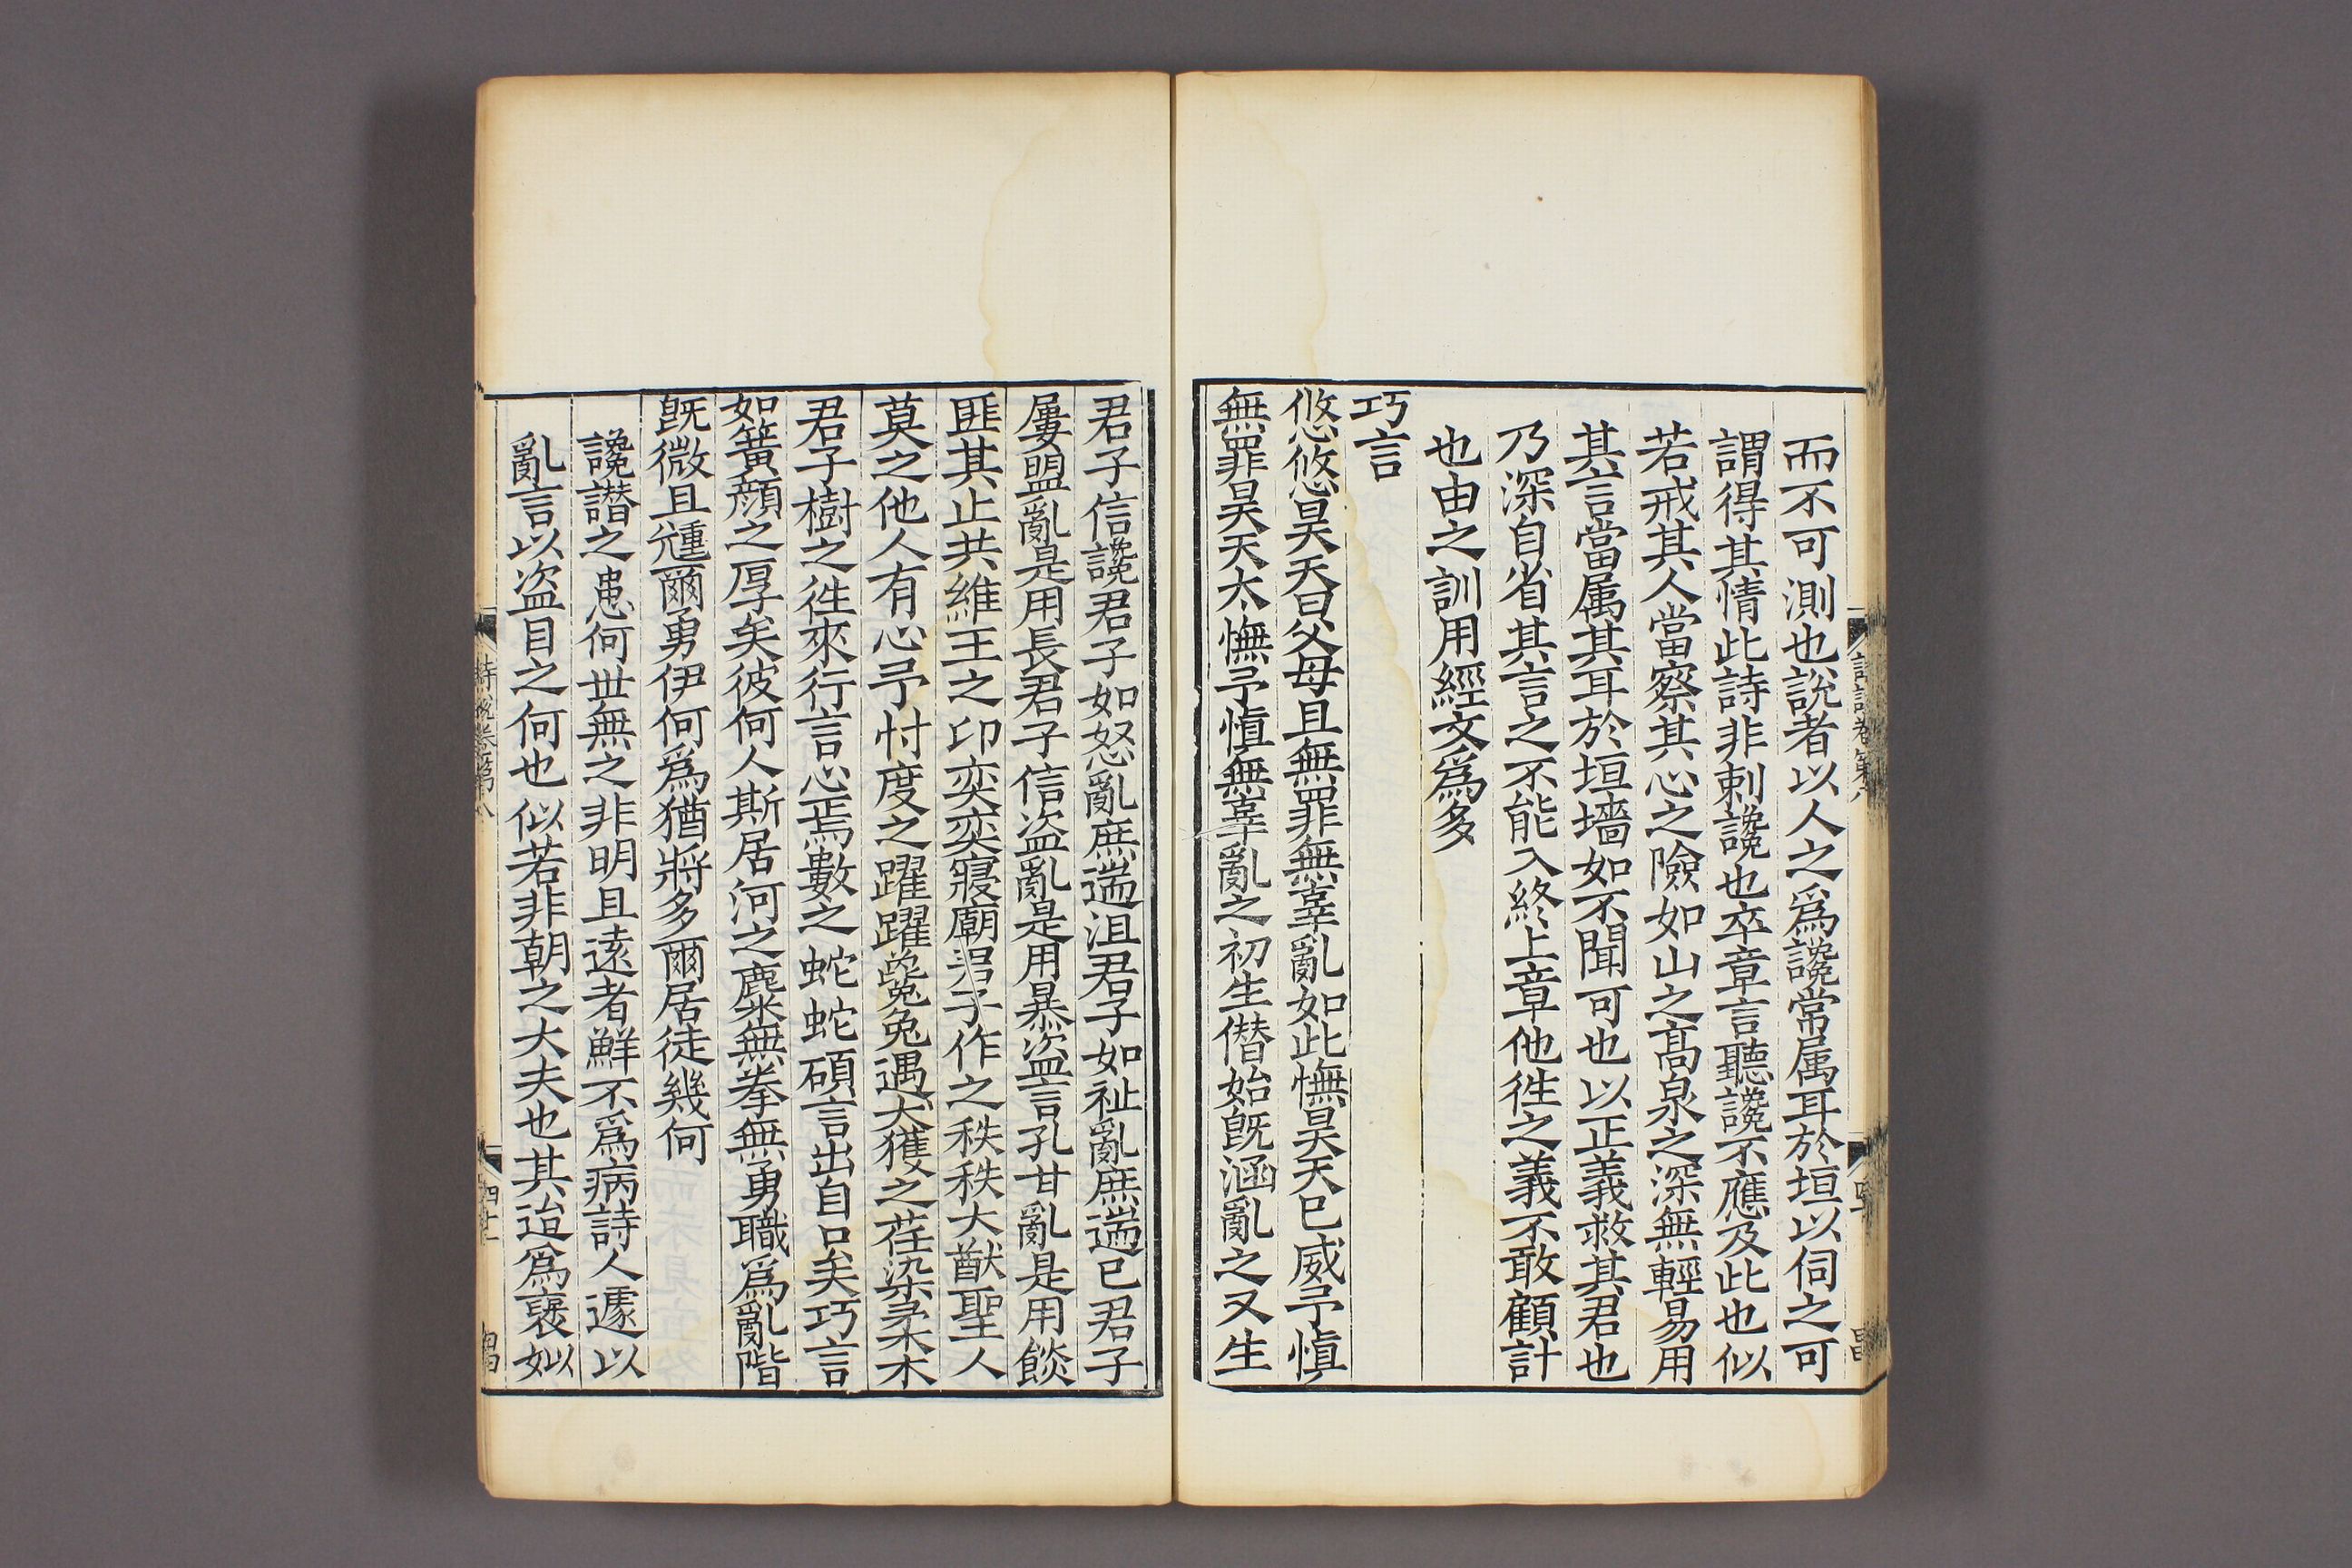 而不可測也說者以人之爲讒常属耳於垣以伺之可
謂得其情此詩非刺讒也卒章言聽讒不應及此也似
若戒其人當察其心之險如山之髙泉之深無輕易用
其言當属其耳於垣墻如不聞可也以正義救其君也
乃深自省其言之不能入終上章他徃之義不敢顧計
也由之訓用經文爲多
巧言
悠悠昊天曰父母且無罪無辜亂如此憮昊天已威予愼
無罪昊天太憮予愼無辜亂之初生僭始旣涵亂之又生
君子信讒君子如怒亂庶遄沮君子如祉亂庶遄已君子
屢盟亂是用長君子信盗亂是用暴盗言孔甘亂是用餤
匪其止共維王之卭奕奕寢廟君子作之秩秩大猷聖人
莫之他人有心予忖度之躍躍毚兔遇犬獲之荏染柔木
君子樹之徃來行言心焉數之蛇蛇碩言出自口矣巧言
如簧顔之厚矣彼何人斯居河之麋無拳無勇職爲亂階
旣微且尰爾勇伊何爲猶將多爾居徒幾何
讒譖之患何丗無之非明且逺者鮮不爲病詩人遽以
亂言以盗目之何也似若非朝之大夫也其迨爲褒姒
詩說卷第八